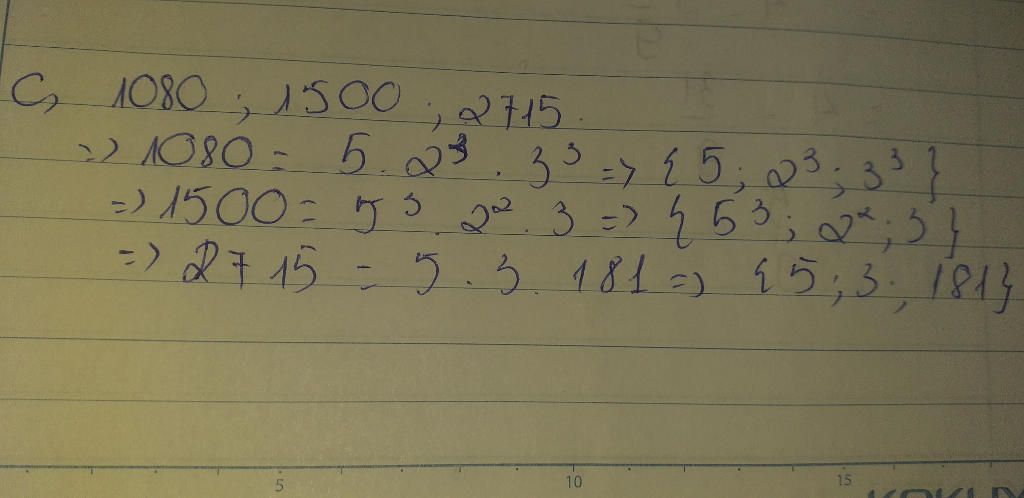 C, 1080 ; 1500 ; 2715.
=> 1080 = 5 . 2³ . 3³ => { 5 ; 2³ ; 3³ }
=> 1500 = 5³ . 2² . 3 => { 5³ ; 2² ; 3 }
=> 2715 = 5 . 3 . 181 => { 5 ; 3 ; 181 }
5 10 15